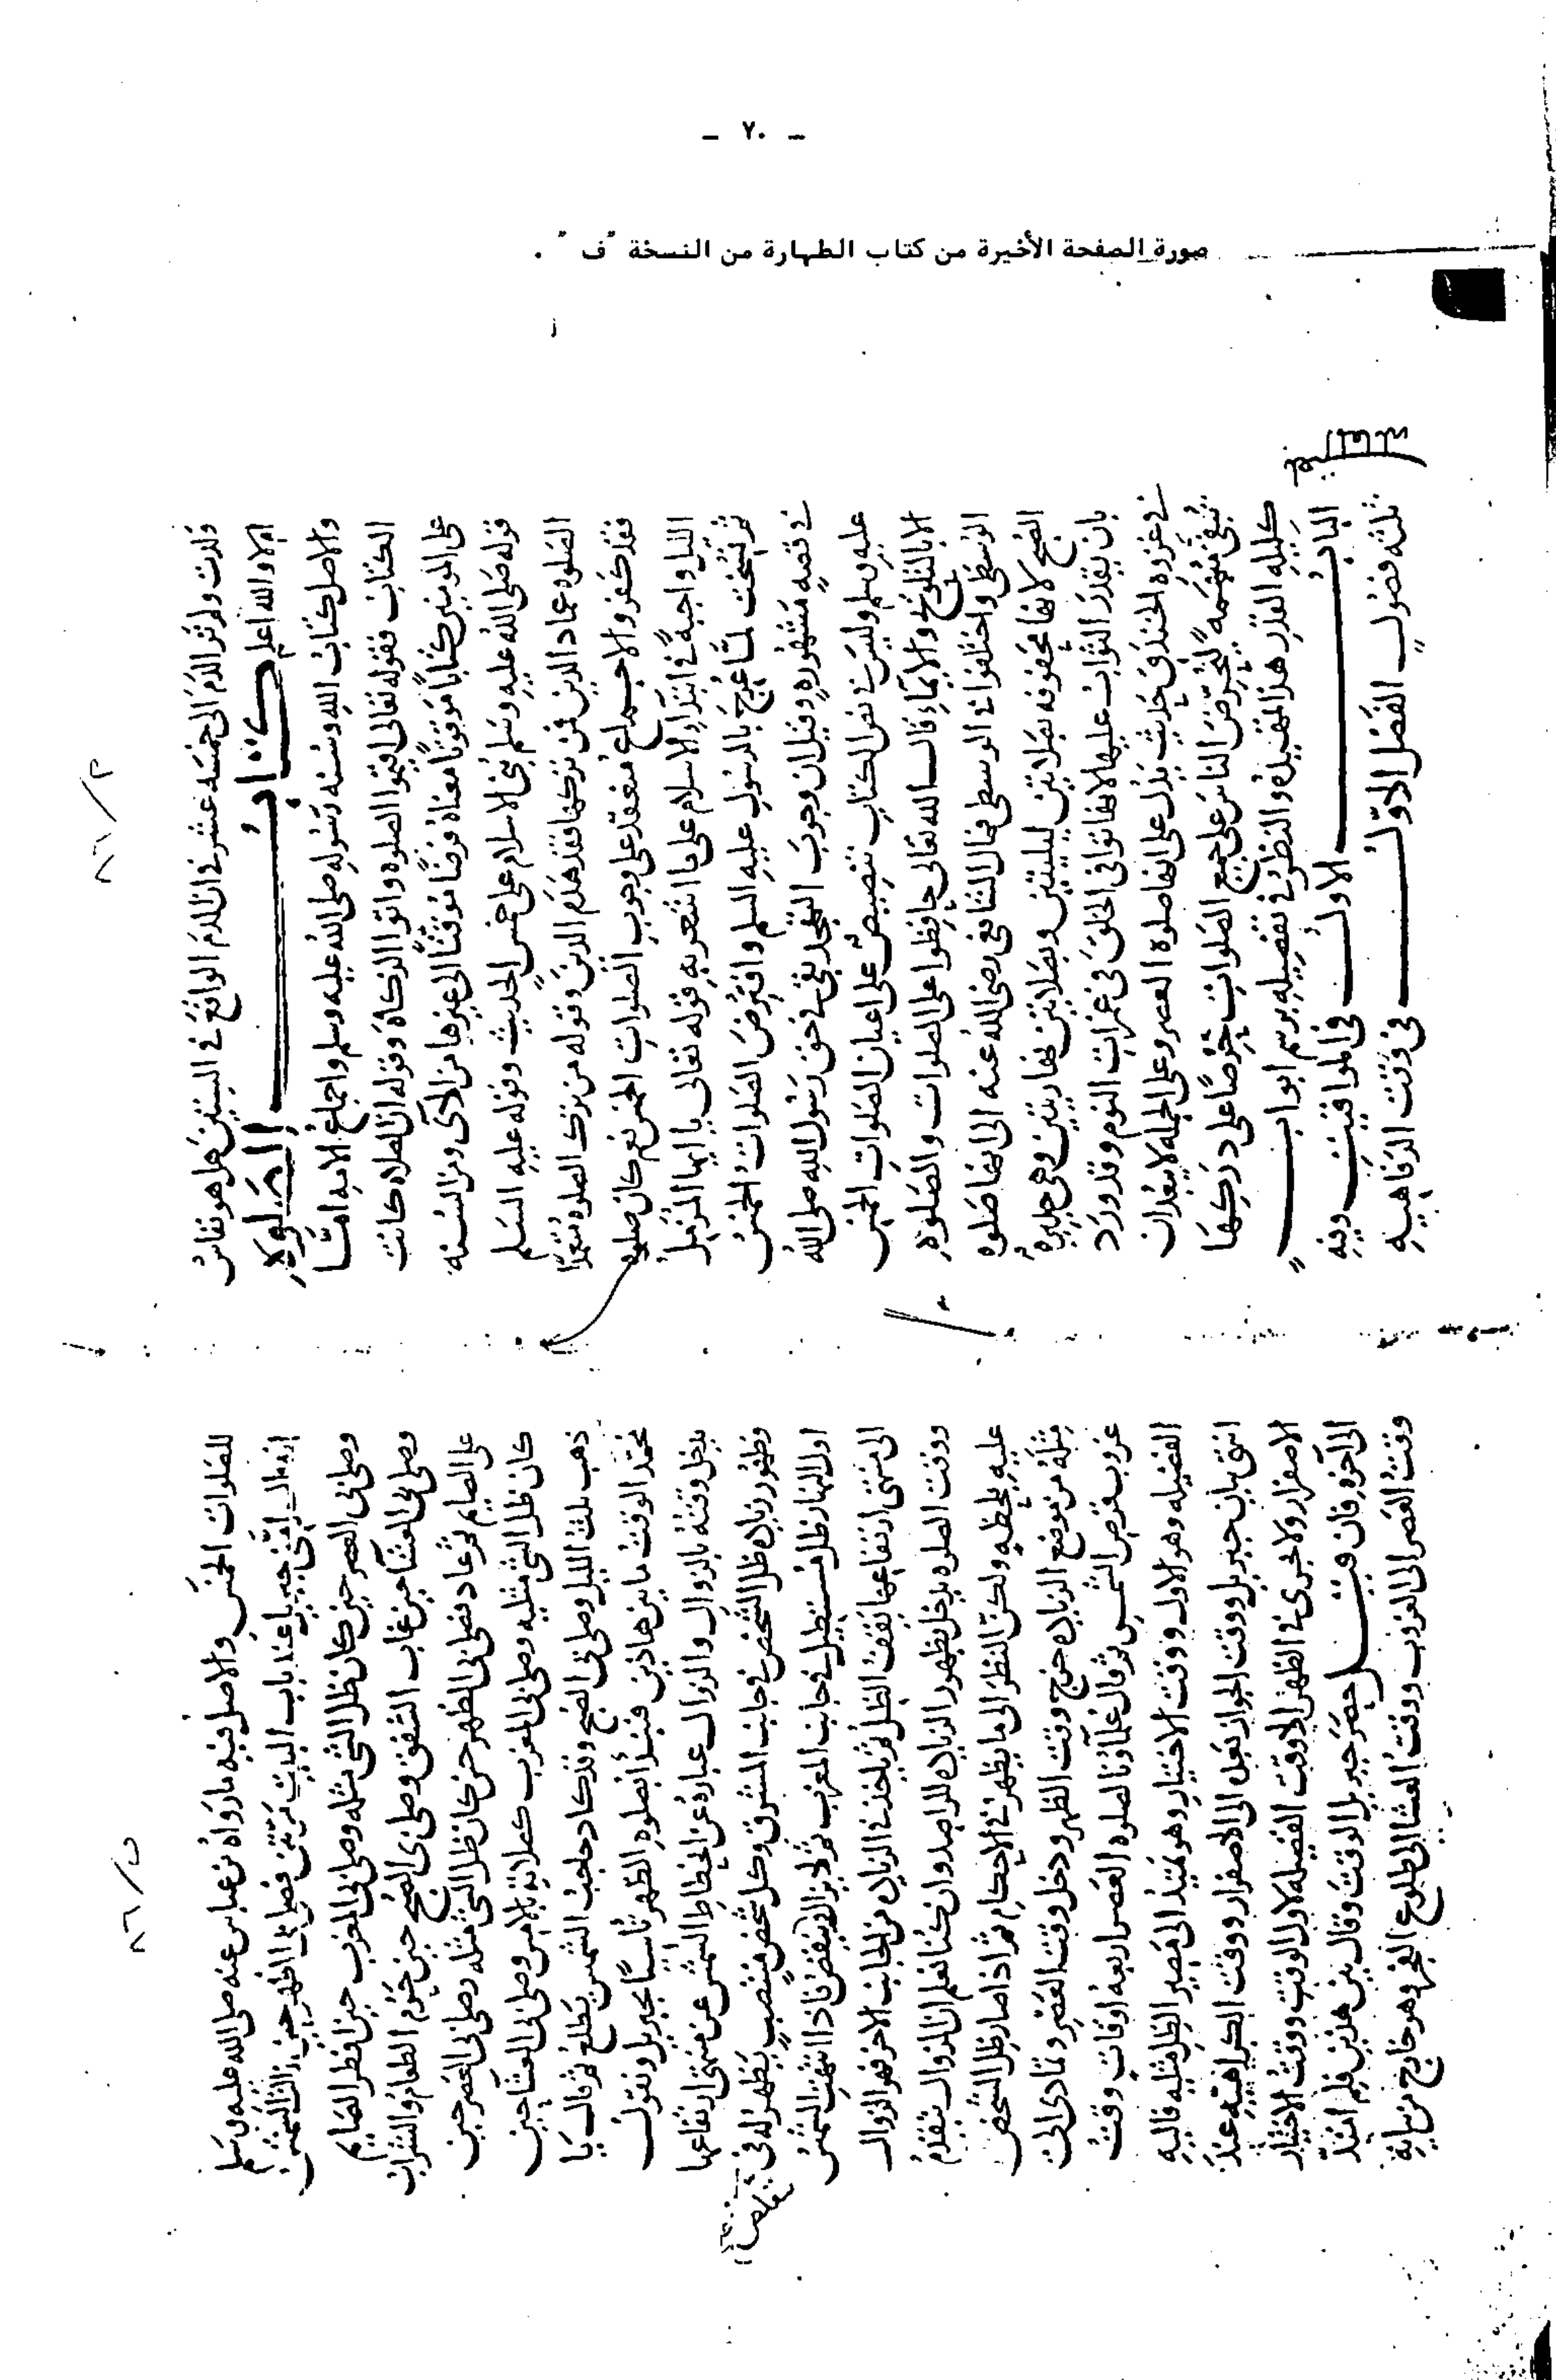 - ٢٠ -
صورة الصفحة الأخيرة من كتاب الطهارة من النسخة "ف" .
٨٦/م
ولدت ولم تر الدم الى خمسه عشر فان الدم الواقع في الستين هل هو نفاس
ام لا والله اعلم كتاب
الصلوة
والاصل كتاب الله وسنه رسوله صلى الله عليه وسلم واجماع الامه امّا
الكتاب فقوله تعالى اقيموا الصلوه واتوا الزكاة وقوله ان الصلاه كانت
على المومنين كتابا موقوتا معناه فرضا موقتا الى غيرها من الآى ومن السنه
قوله صلى الله عليه وسلم بنى الاسلام على خمس الحديث وقوله عليه السلم
الصلوه عماد الدين فمن تركها فقد هدم الدين وقوله من ترك الصلوه متعمدا
فقد كفر والاجماع منعقد على وجوب الصلوات الخمس نعم كان صلوه
الليل واجبة في ابتداء الاسلام على ما اشعر به قوله تعالى يا ايها المزمل
ثم نسخت لما عرج بالرسول عليه السلم وافترض الصلوات الخمس
في قصه مشهوره وقيل ان وجوب التهجد بقى في حق رسول الله صلى الله
عليه وسلم وليس في نص الكتاب تنصيص على اعيان الصلوات الخمس
الا بالتلويح والايماء قال الله تعالى حافظوا على الصلوات والصلوه
الوسطى واختلفوا في الوسطى فمال الشافعي رضي الله عنه الى انها صلوه
الصبح لانها محفوفه بصلاتين ليليتين وبصلاتين نهاريتين وهي جديره
بان يقدر الثواب عليها لانها توافى الخلق في غمرات النوم وقد ورد
في غزوه الخندق حديث يدل على انها صلوه العصر وعلى الجمله لا يبعد ان
تبقى مبهمه ليحرص الناس على جميع الصلوات حرصا على دركها
كليله القدر هذا تمهيده والنظر في تفصيله يرسم ابواب
الباب الاول في المواقيت وفيه
ثلثه فصول الفصل الاول في وقت الرفاهيه
٨٦/ب
للصلوات الخمس والاصل فيه ما رواه ابن عباس عنه صلى الله عليه وسلم
انه قال امنى جبريل عند باب البيت مرتين فصلى بى الظهر حين زالت الشمس
وصلى بى العصر حين كان ظل الشى مثله وصلى بى المغرب حين افطر الصايم
وصلى بى العشا حين غاب الشفق وصلى بى الصبح حين حرم الطعام والشراب
على الصايم ثم عاد فصلى بى الظهر حين كان ظل الشى مثله وصلى بى العصر حين
كان ظل الشى مثليه وصلى بى المغرب كصلاته بالامس وصلى بى العشا حين
ذهب ثلث الليل وصلى بى الصبح وقد كاد حاجب الشمس يطلع ثم قال يا
محمد الوقت ما بين هاذين فنبدأ بصلوه الظهر تاسيا بجبريل ونقول
يدخل وقته بالزوال والزوال عباره عن انحطاط الشمس عن منتهى ارتفاعها
وظهور زياده ظل الشخص في جانب المشرق وكل شخص منتصب يظهر له في
اول النهار ظل مستطيل في جانب المغرب ثم لا يزال ينقص فاذا انتهت الشمس
الى منتهى ارتفاعها يقف الظل ثم ياخذ في الزياده من الجانب الاخر فهو الزوال
ووقت الصلوه يدخل بظهور الزياده للراصد وان كنا نعلم ان الزوال يتقدم
عليه بلحظه ولكن النظر الى ما يظهر في الاحكام ثم اذا صار ظل الشخص
مثله من موضع الزياده خرج وقت الظهر ودخل وقت العصر وتمادى الى
غروب قرص الشمس ثم قال علماؤنا لصلوه العصر اربعه اوقات وقت
الفضيله وهو الاول ووقت الاختيار وهو يمتد الى مصير الظل مثليه فاليه
انتهى بيان جبريل ووقت الجواز بعده الى الاصفرار ووقت الكراهيه عند
الاصفرار ولا يجرى في الظهر الا وقت الفضيله لاول الوقت ووقت الاختيار
الى آخره فان قيل حصر جبريل الوقت وقال بين هذين فلم امتد
وقت العصر الى الغروب ووقت العشا الى طلوع الفجر وهو خارج من بيانه